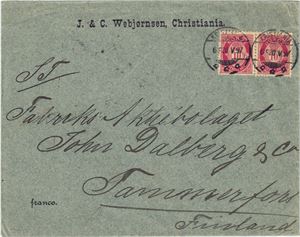 J. & C. Webjørnsen, Christiania.
S.T.
Fabriks Aktiebolaget
John Dalberg & Co
Tammerfors
franco.
Finland